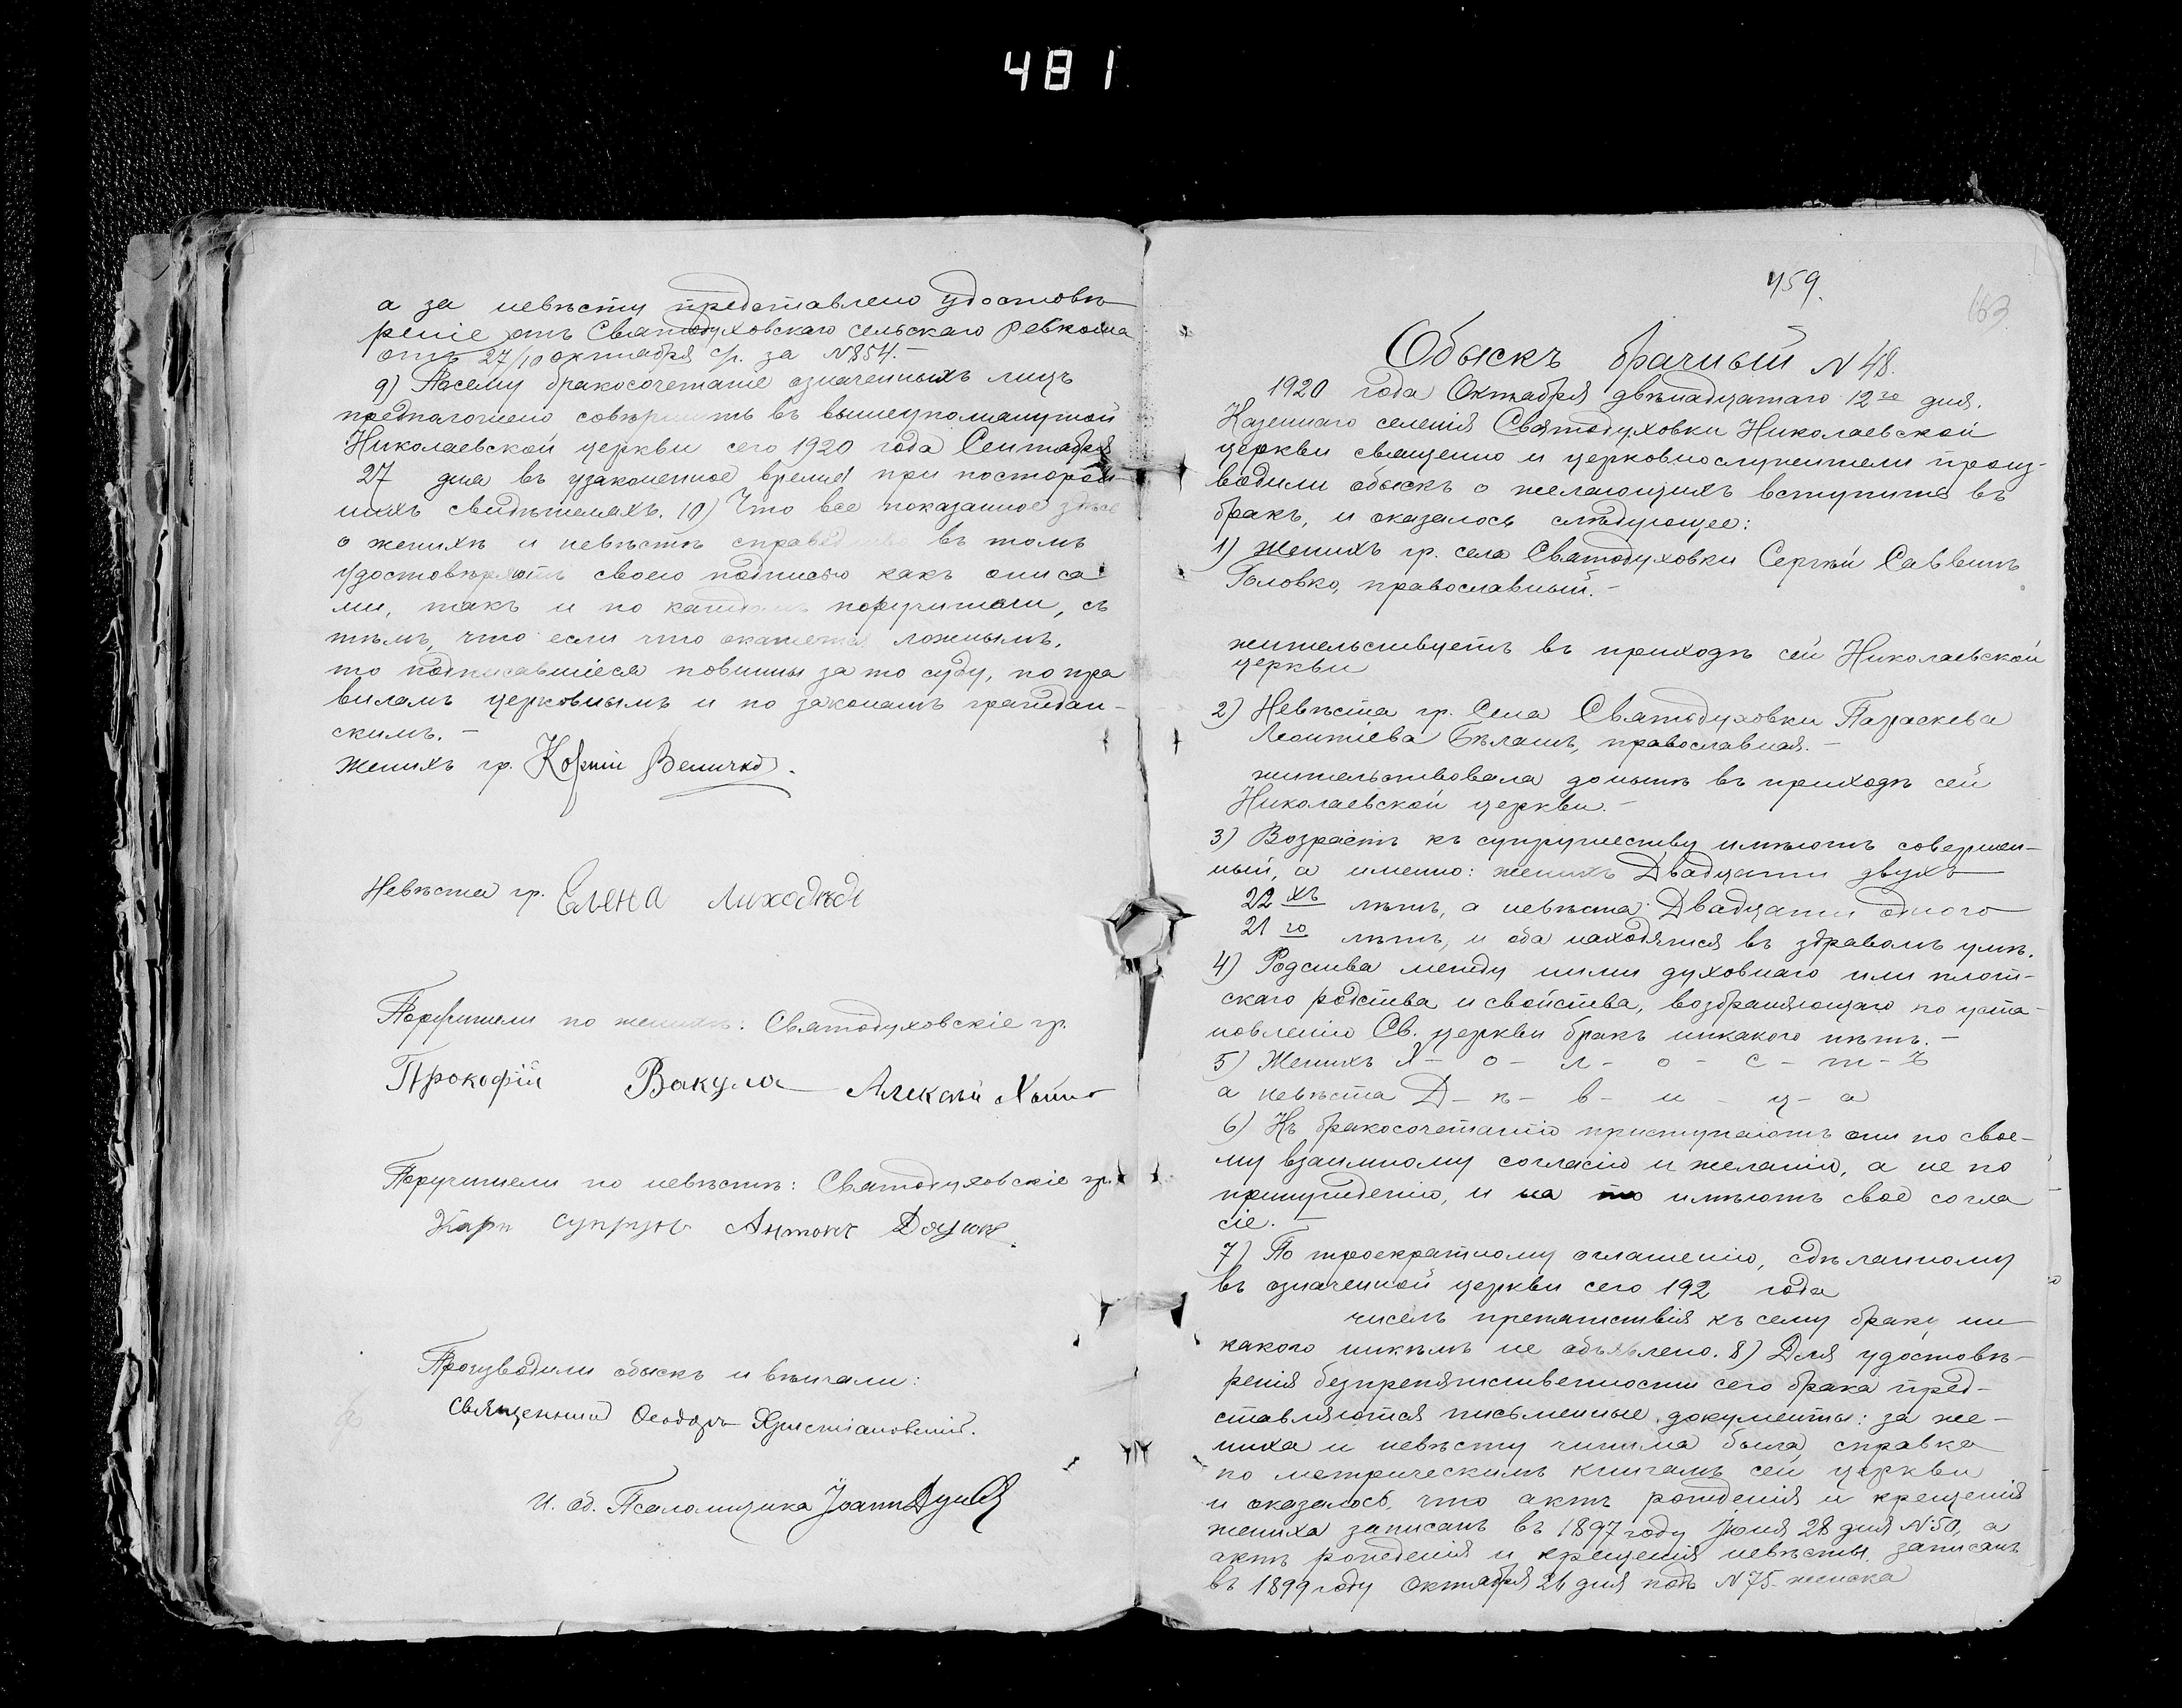 481
а за невѣсту представлено удостовѣ
реніе отъ Святодуховскаго сельскаго ревкома
отъ 27/10 октября с/г. за №854.
9) Посему бракосочетаніе означенныхъ лицъ
предположено совершить въ вышеупомянутой
Николаевской церкви сего 1920 года Сентября
27 дня въ узаконенное время при посторон-
нихъ свидѣтеляхъ. 10) Что все показанное здѣсь
о женихѣ и невѣстѣ справедливо въ томъ
удостовѣряютъ своею подписью какъ они са
ми, такъ и по каждомъ поручители, съ
тѣмъ, что если что окажется ложнымъ,
то подписавшіеся повинны за то суду, по пра
виламъ церковнымъ и по законамъ граждан-
скимъ. –
Женихъ гр. Корній Величко.
Невѣста гр. Елена Лиходѣдъ
Поручители по женихѣ: Святодуховскіе гр.
Прокофій Вакула Алексѣй
Поручители по невѣстѣ: Святодуховскіе гр.
Карп Супрунъ Антонъ
Производили обыскъ и вѣнчали:
Священникъ Ѳеодоръ Христіановскій.
И. об. Псаломщика Іоаннъ
459.
163
Обыскъ брачный № 48.
1920 года Октября двѣнадцатаго 12го дня.
Казеннаго селенія Святодуховки Николаевской
церкви священно и церковнослужители произ-
водили обыскъ о желающихъ вступить въ
бракъ, и оказалось слѣдующее:
1) Женихъ гр. села Святодуховки Сергѣй Саввинъ
Головко, православный. –
жительствуетъ въ приходѣ сей Николаевской
церкви
2) Невѣста гр. Села Святодуховки Параскева
Леонтіева Бѣлашъ, православная. –
жительствовала донынѣ въ приходѣ сей
Николаевской церкви. –
3) Возрастъ къ супружеству имѣютъ совершен-
ный, а именно: женихъ Двадцати двухъ
22хъ лѣтъ, а невѣста Двадцати одного
21го лѣтъ, и оба находятся въ здравомъ умѣ.
4) Родства между ними духовнаго или плот-
скаго родства и свойства, возбраняющаго по уста-
новленію Св. церкви бракъ никакого нѣтъ. –
5) Женихъ Х – о – л – о – с – т – ъ
а невѣста Д – ѣ – в – и – ц – а
6) Къ бракосочетанію приступаютъ они по свое-
му взаимному согласію и желанію, а не по
принужденію, и на то имѣютъ свое согла
сіе. –
7) По троекратному оглашенію, сдѣланному
въ означенной церкви сего 192 года
чиселъ препятствія къ сему браку ни
какого никѣмъ не объявлено. 8) Для удостовѣ-
ренія безпрепятственности сего брака пред-
ставляются письменные документы: за же-
ниха и невѣсту чинима была справка
по метрическимъ книгамъ сей церкви
и оказалось, что актъ рожденія и крещенія
жениха записанъ въ 1897 году Іюня 28 дня №50, а
актъ рожденія и крещенія невѣсты записанъ
въ 1899 году Октября 26 дня подъ №75 женска